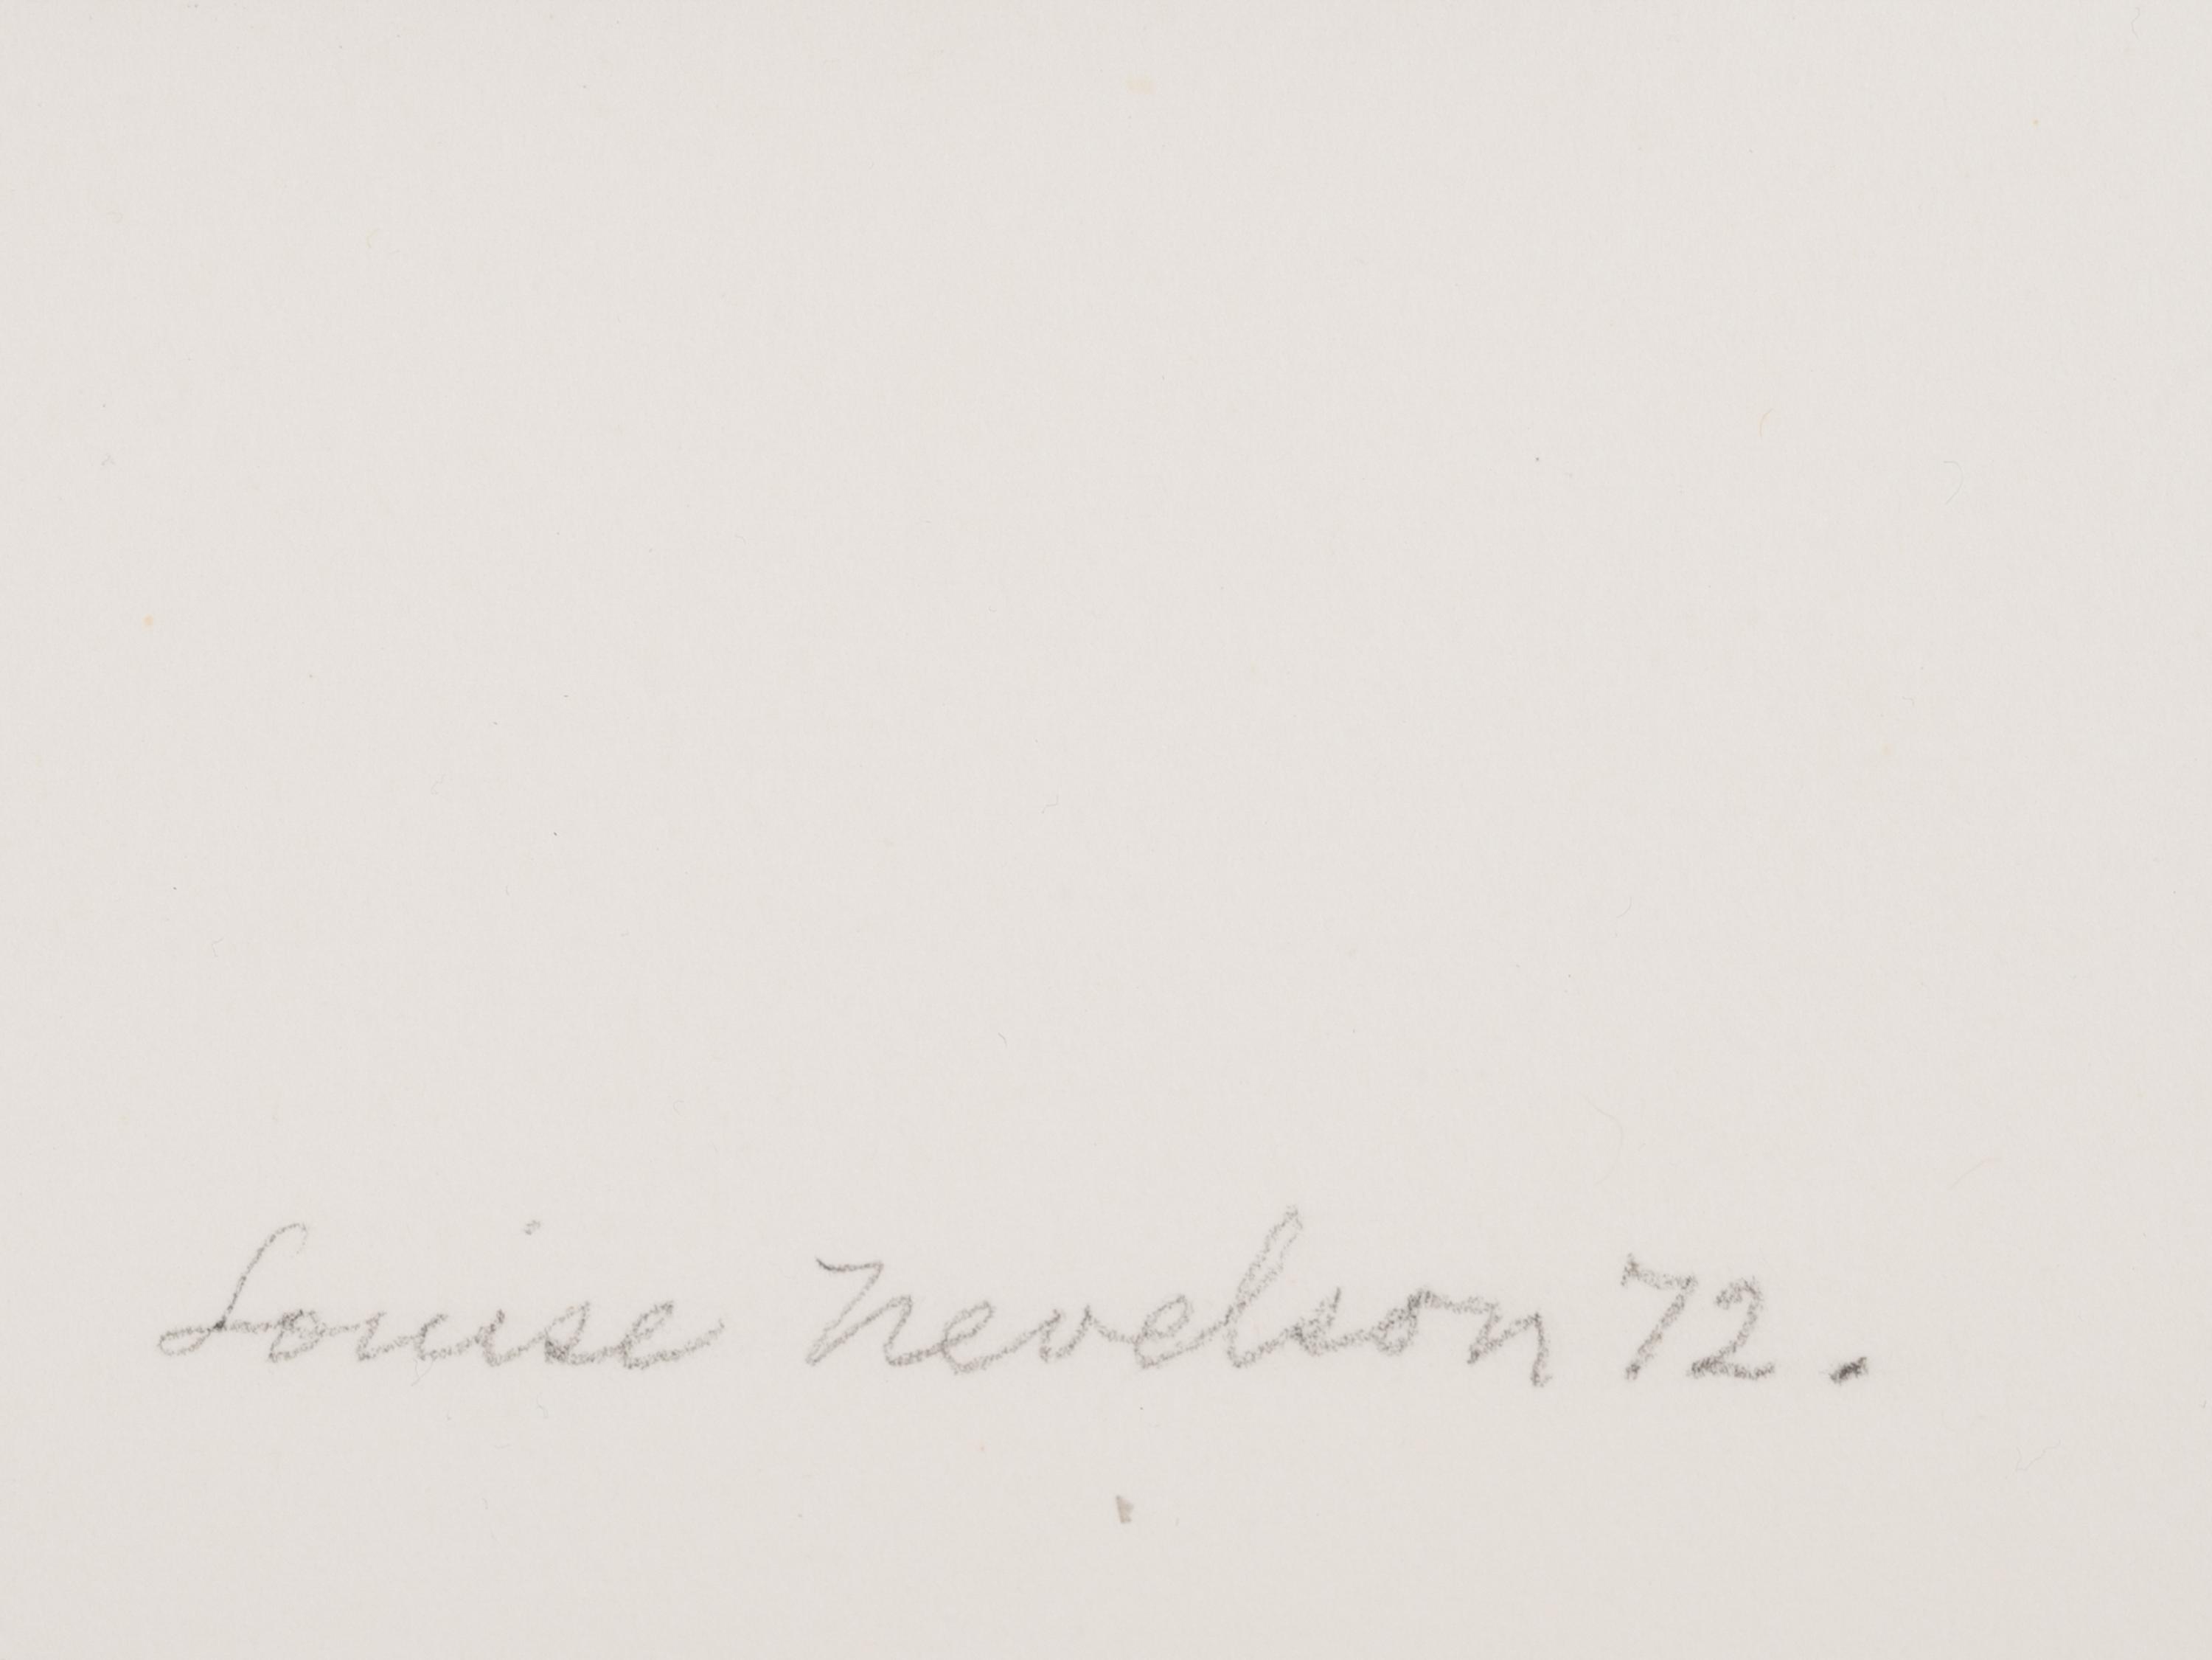 Louise Nevelson 72.